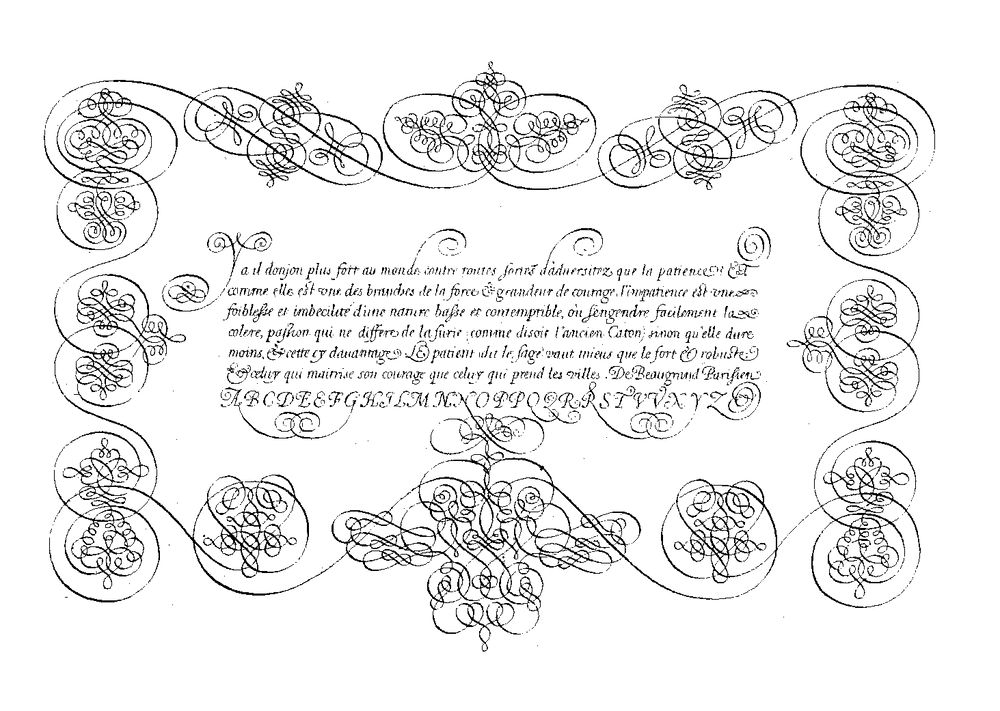 Y a il donjon plus fort au monde contre toutes sortes d'aduersitez que la patience, & EST
comme elle est vne des branches de la force & grandeur de courage, l'impatience est vne
foiblesse et imbecilité d'une nature basse et contemptible, où s'engendre facilement la
colere, passion qui ne differe de la furie (comme disoit l'ancien Caton) sinon qu'elle dure
moins, & cette cy dauantage, Le patient dit le sage vaut mieus que le fort & robuste
& celuy qui maitrise son courage que celuy qui prend les villes. De Beaugrand Parisien
A B C D E E F G H I L M N N O P P Q R R S T V V X Y Z &